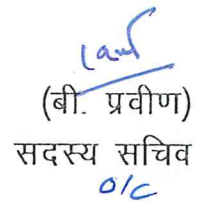 (बी. प्रवीण)
सदस्य सचिव
O/C